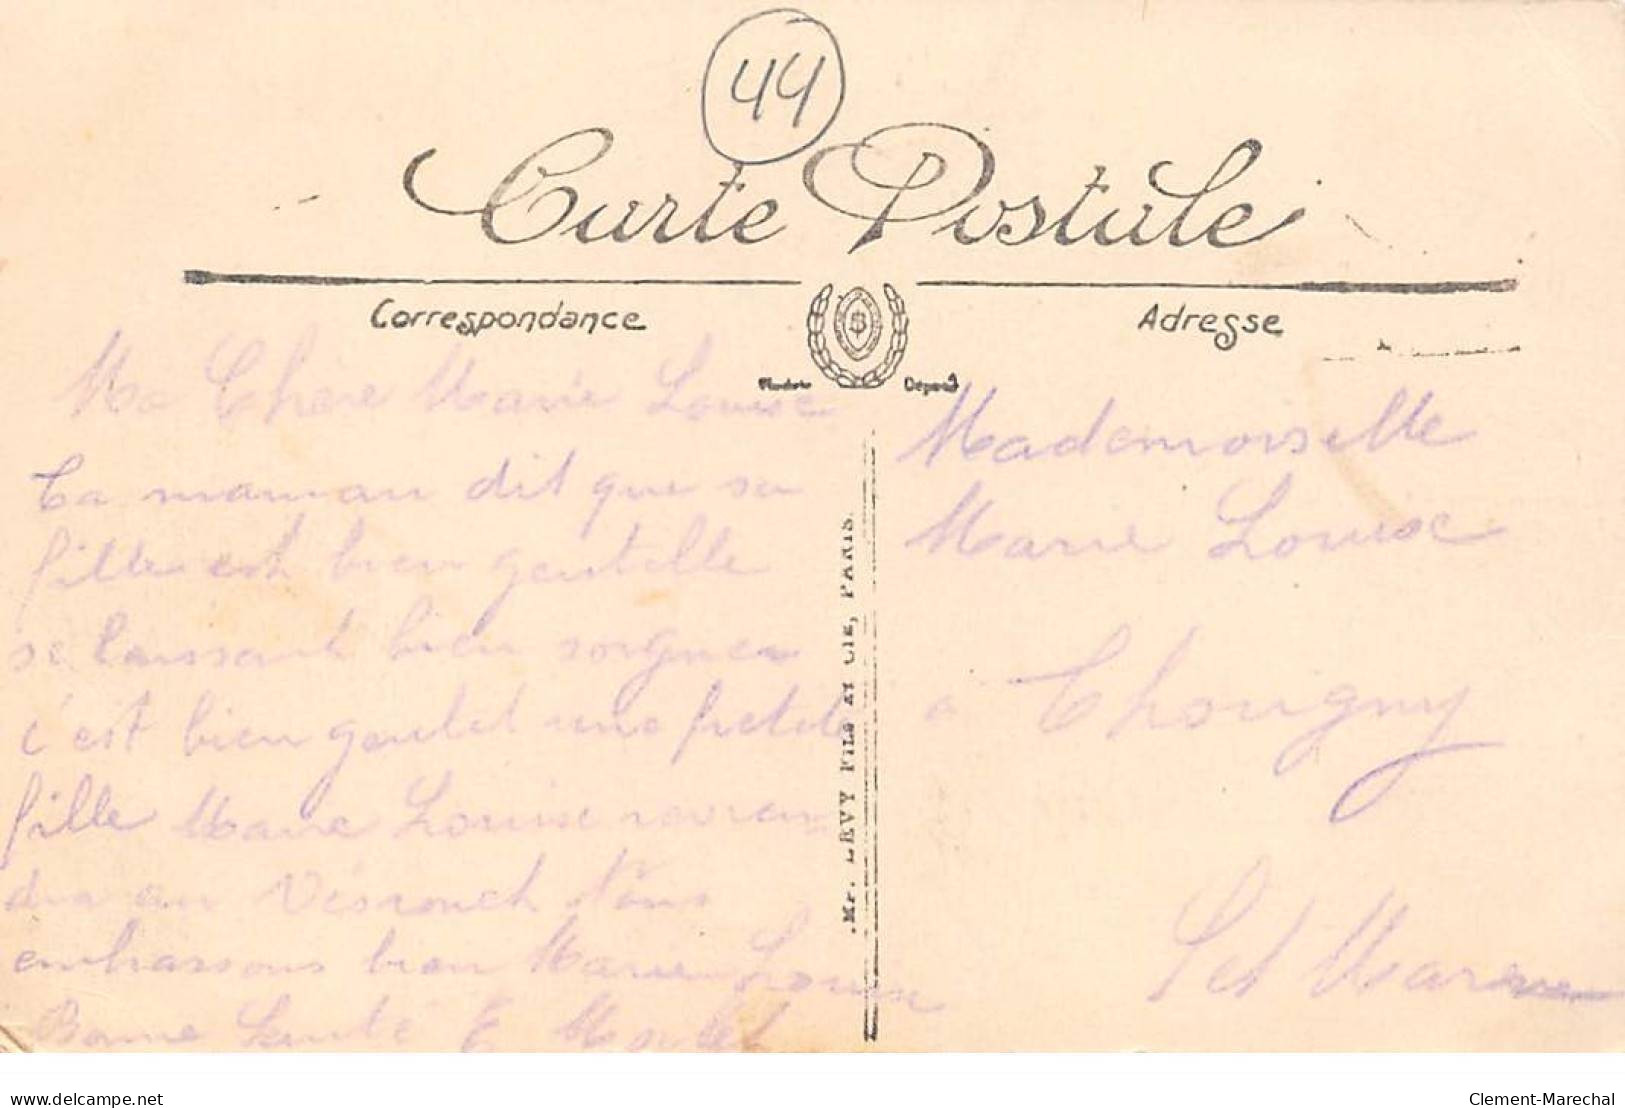 44
Carte Postale
Correspondance
Adresse
Modèle Déposé
Ma Chère Marie Louise
Ta maman dit que sa
fille est bien gentille
se laissant bien soigner
c'est bien gentil une petite
fille Marie Louise revien
dra au
embrassons bien Marie Louise
Bonne Santé E
Mademoiselle
Marie Louise
a Thorigny
Set Marne
Mp. LÉVY FILS ET CIE, PARIS.
delcampe.net
Clement-Marechal